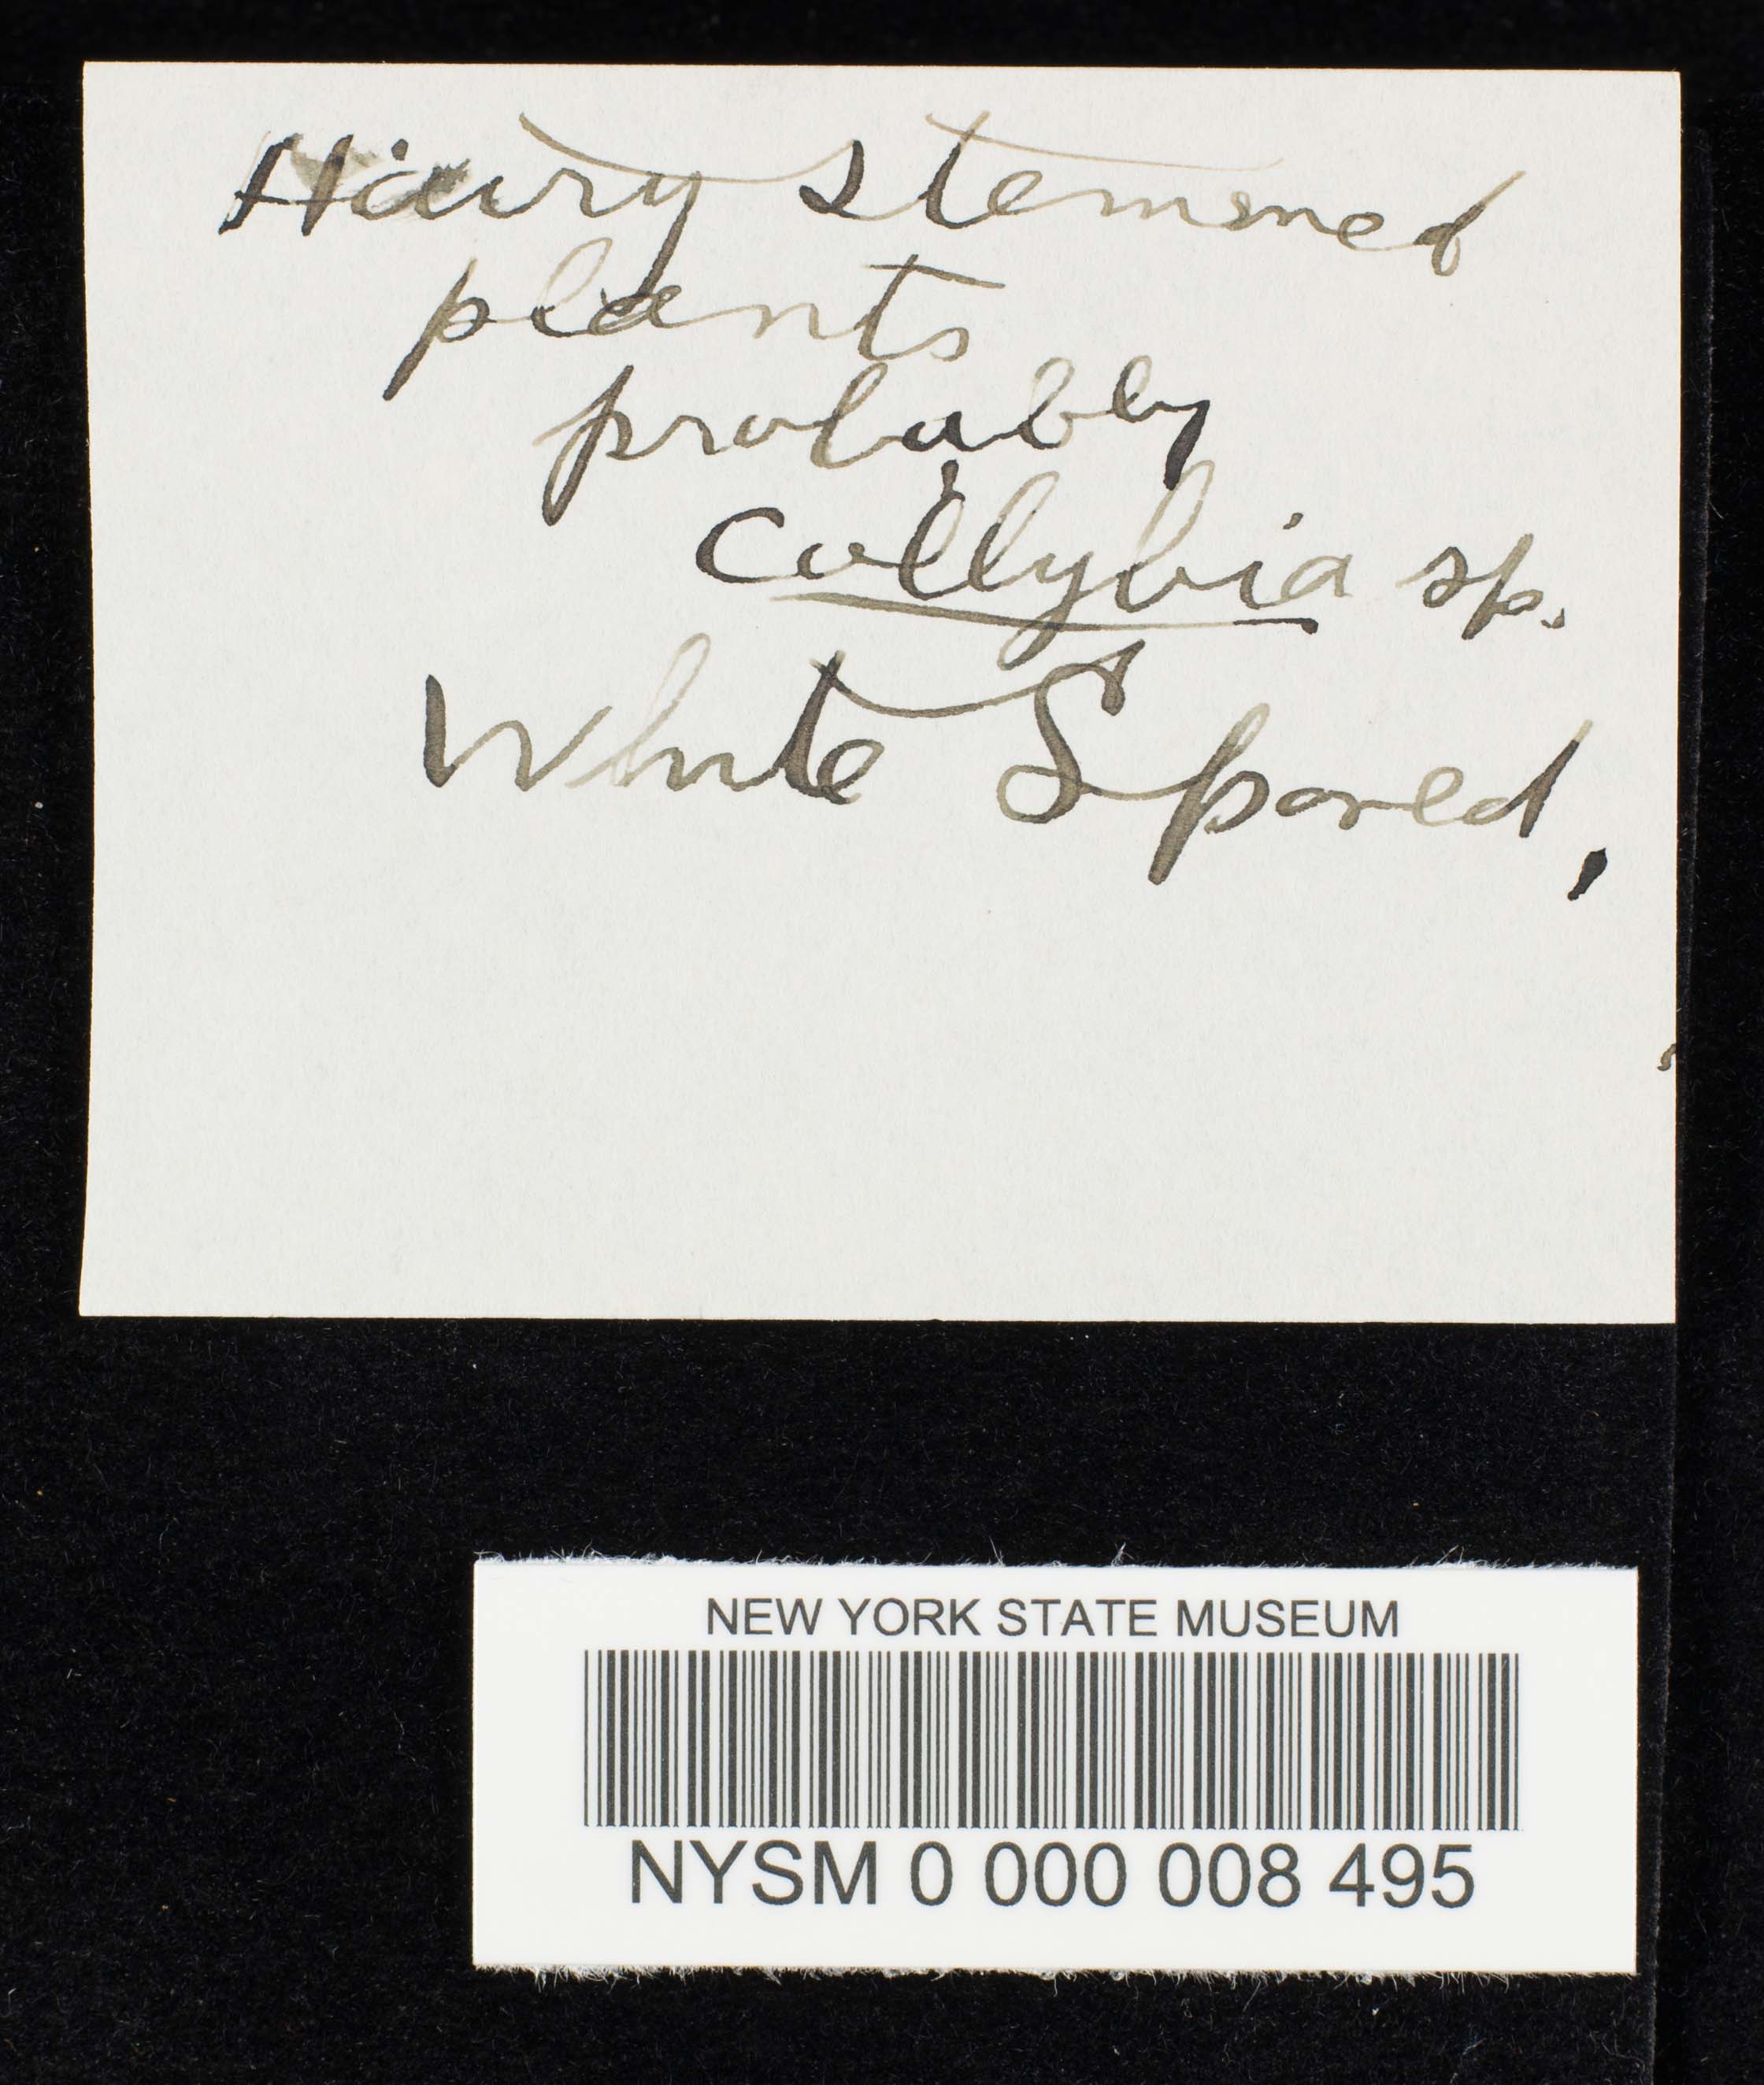 Hairy stemmed
plants
probably
Collybia sp.
White Spored.
NEW YORK STATE MUSEUM
NYSM 0 000 008 495